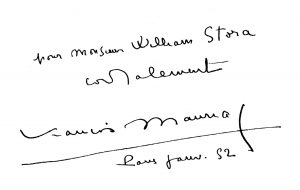 pour Monsieur William Stora
cordialement
François Mauriac
Paris janv. 52